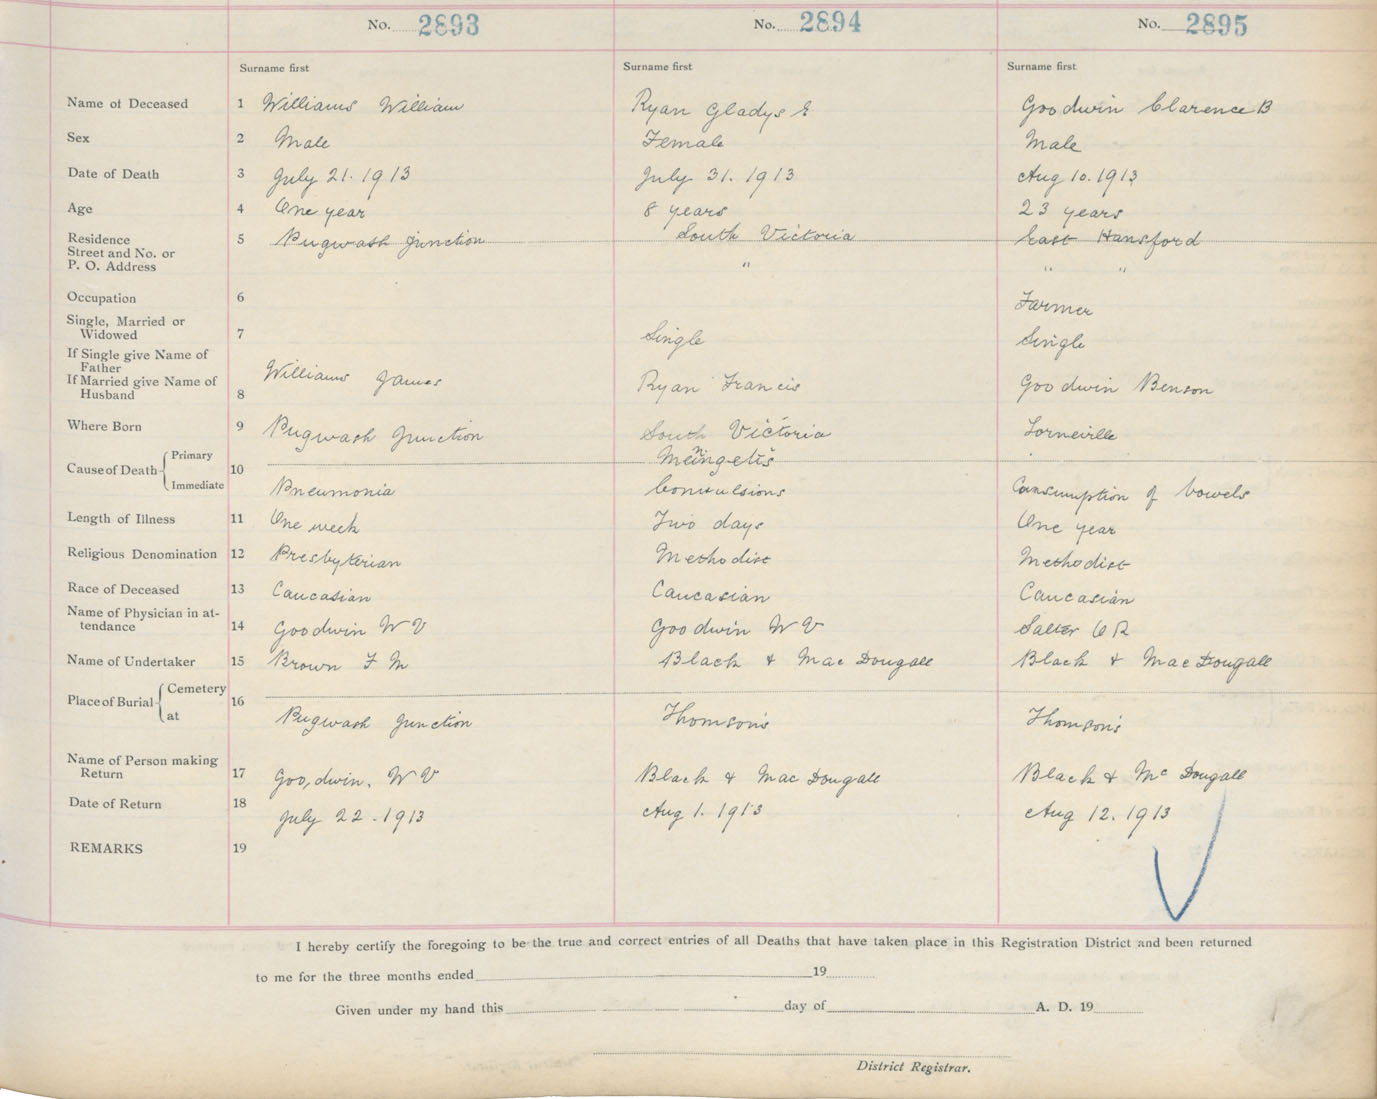 No. 2893 No. 2894 No. 2895
Surname first Surname first Surname first
Name of Deceased 1 Williams William Ryan Gladys E Goodwin Clarence B
Sex 2 Male Female Male
Date of Death 3 July 21. 1913 July 31. 1913 Aug 10. 1913
Age 4 One year 8 years 23 years
Residence 5 Pugwash Junction South Victoria East Hansford
Street and No. or
P. O. Address " " "
Occupation 6 Farmer
Single, Married or
Widowed 7 Single Single
If Single give Name of
Father
If Married give Name of
Husband 8 Williams James Ryan Francis Goodwin Benson
Where Born 9 Pugwash Junction South Victoria Lorneville
Cause of Death 10 Primary Meningetis
Immediate Pneumonia Convulsions Consumption of bowels
Length of Illness 11 One week Two days One year
Religious Denomination 12 Presbyterian Methodist Methodist
Race of Deceased 13 Caucasian Caucasian Caucasian
Name of Physician in at-
tendance 14 Goodwin W V Goodwin W V Salter C R
Name of Undertaker 15 Brown F M Black & MacDougall Black & MacDougall
Place of Burial 16 Cemetery
at Pugwash Junction Thomson's Thomson's
Name of Person making
Return 17 Goodwin. W V Black & MacDougall Black & McDougall
Date of Return 18 July 22. 1913 Aug 1. 1913 Aug 12. 1913
REMARKS 19
I hereby certify the foregoing to be the true and correct entries of all Deaths that have taken place in this Registration District and been returned
to me for the three months ended 19
Given under my hand this day of A. D. 19
District Registrar.